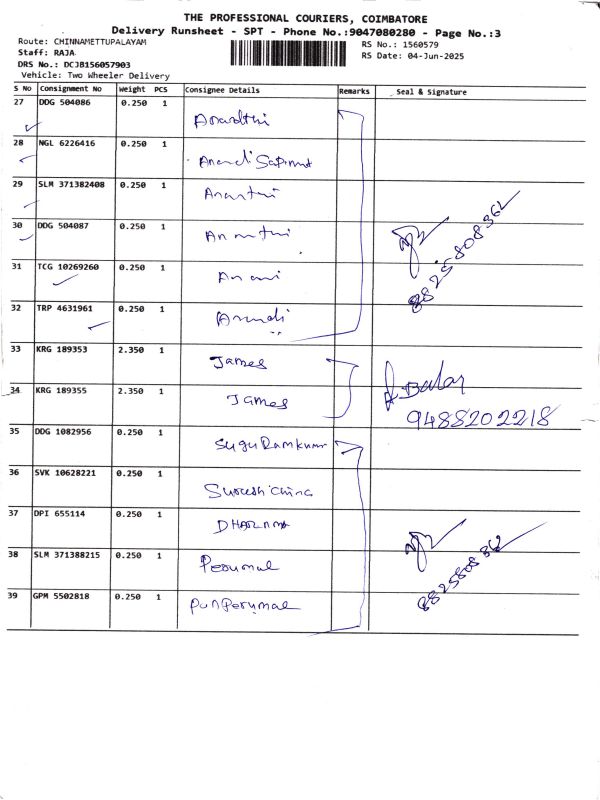 THE PROFESSIONAL COURIERS, COIMBATORE
Delivery Runsheet - SPT - Phone No.:9047080280 - Page No.:3
Route: CHINNAMETTUPALAYAM
RS No.: 1560579
Staff: RAJA
RS Date: 04-Jun-2025
DRS No.: DCJB156057903
Vehicle: Two Wheeler Delivery
S No Consignment No Weight PCS Consignee Details Remarks Seal & Signature
27 DDG 504086 0.250 1
28 NGL 6226416 0.250 1
29 SLM 371382408 0.250 1 Ananthi
30 DDG 504087 0.250 1 Ananthi
8825808362
31 TCG 10269260 0.250 1
32 TRP 4631961 0.250 1
33 KRG 189353 2.350 1 James
34 KRG 189355 2.350 1 James
9488202218
35 DDG 1082956 0.250 1 Sugu Ramkumar
36 SVK 10628221 0.250 1
37 DPI 655114 0.250 1
38 SLM 371388215 0.250 1 Perumal
8825808362
39 GPM 5502818 0.250 1 PonPerumal